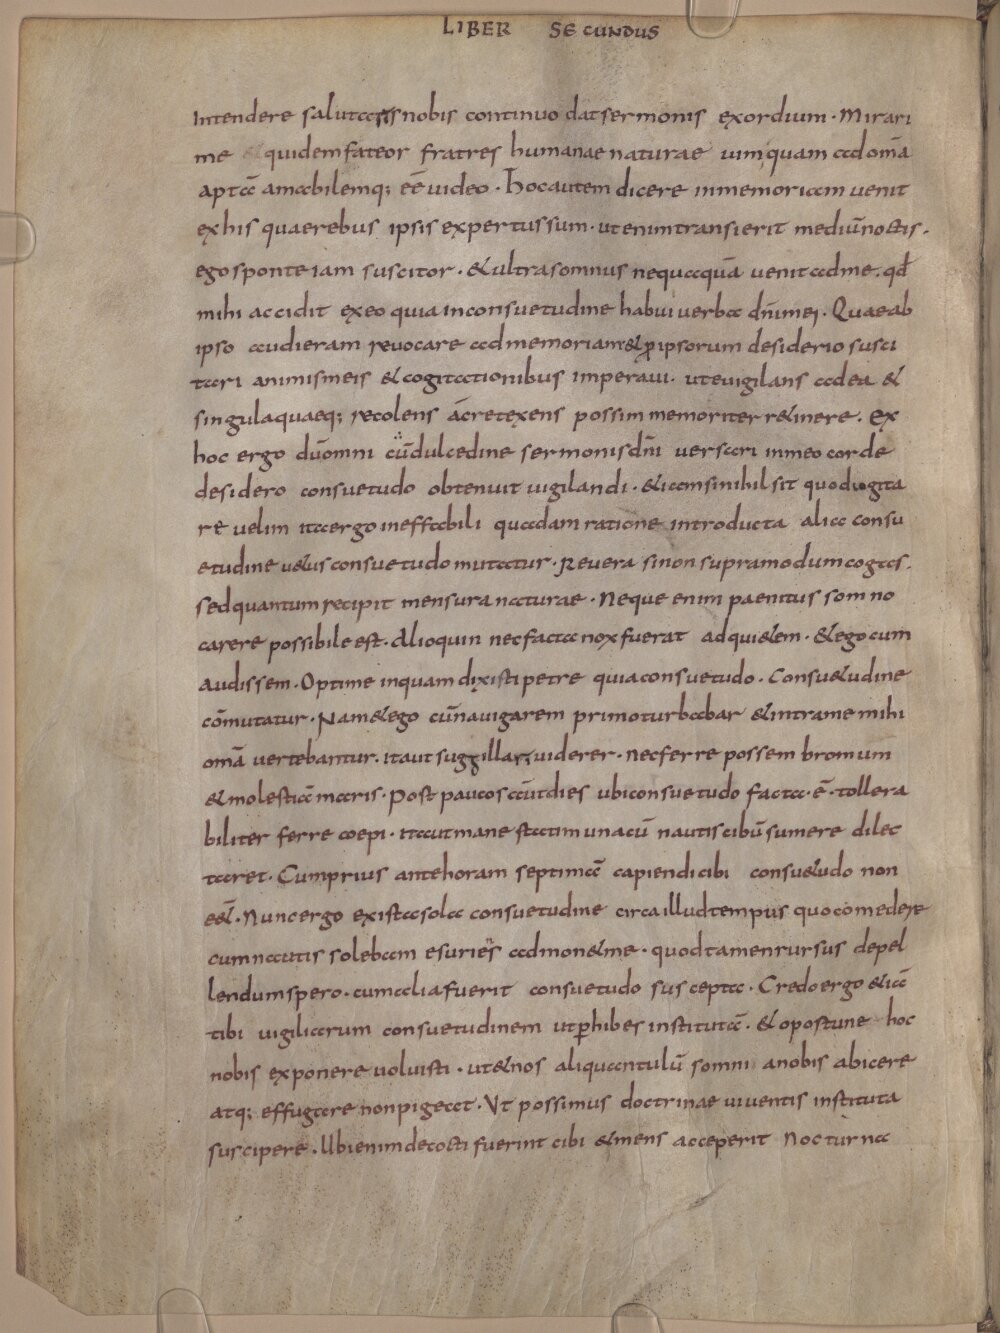 LIBER SECUNDUS
Intendere salutatis nobis continuo dat sermonis exordium. Mirari
me quidem fateor fratres humanae naturae uim quam ad omā
aptā amabilemq; eē uideo. Hoc autem dicere in memoriam uenit
ex his quae rebus ipsis expertus sum. ut enim transierit mediū noctis.
ego sponte iam suscitor. & ultra somnus nequaquā uenit ad me. qđ
mihi accidit ex eo quia in consuetudine habui uerba dn̄i mei. Quae ab
ipso audieram reuocare ad memoriam & p̱ ipsorum desiderio susci
tari animis meis & cogitationibus imperaui. ut euigilans ad ea &
singula quaeq; recolens ac retexens possim memoriter r&inere. Ex
hoc ergo dū omni cū dulcedine sermonis dn̄i uersari in meo corde
desidero consuetudo obtenuit uigilandi. & iam si nihil sit quod cogita
re uelim ita ergo ineffabili quadam ratione introducta alia consu
etudine u&us consuetudo mutatur. Reuera si non supra modum cogas.
sed quantum recipit mensura naturae. Neque enim paenitus somno
carere possibile est. Alioquin nec facta nox fuerat ad qui&em. & ego cum
audissem. Optime inquam dixisti petre quia consuetudo. Consu&udine
cōmutatur. Nam & ego cū nauigarem primo turbabar & intra me mihi
omā uertebantur. ita ut suggillari uiderer. nec ferre possem bromum
& molestiā maris. Post paucos aut dies ubi consuetudo facta. ē. tollera
biliter ferre coepi. ita ut mane statim una cū nautis cibū sumere dilec
taret. Cum prius ante horam septimā capiendi cibi consu&udo non
ee&. Nunc ergo ex ista sola consuetudine circa illud tempus quo comedere
cum nautis solebam esuries admon& me. quod tamen rursus depel
lendum spero. cum alia fuerit consuetudo suscepta. Credo ergo & iā
tibi uigiliarum consuetudinem ut p̱hibes institutā. & opostune hoc
nobis exponere uoluisti. ut & nos aliquantulū somni a nobis abicere
atq; effugare non pigeat. Ut possimus doctrinae uiuentis instituta
suscipere. Ubi enim decocti fuerint cibi & mens acceperit nocturna